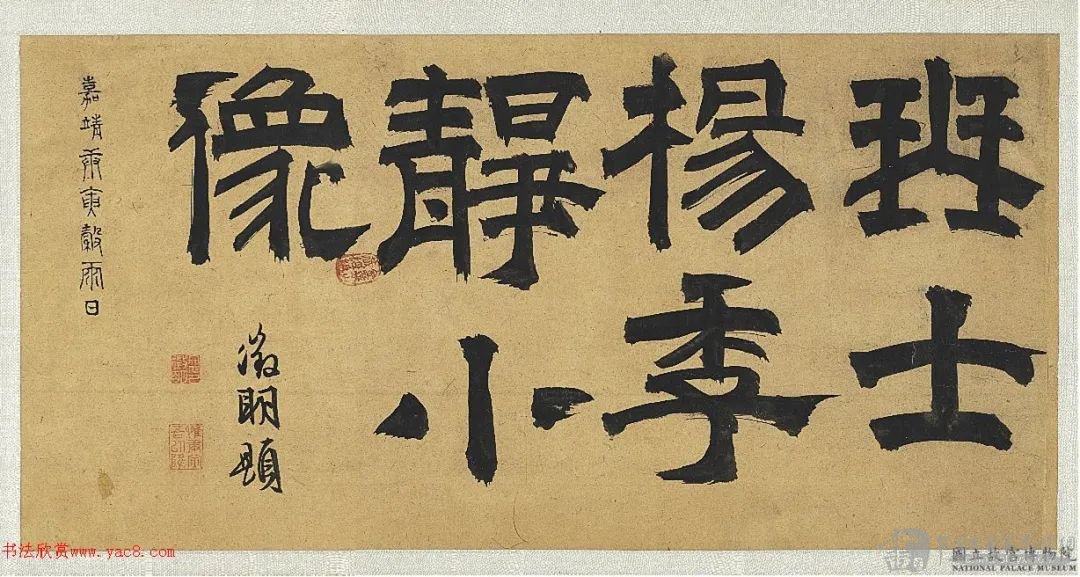 琴士
楊季
靜小
像
徵明題
嘉靖庚寅穀雨日
书法欣赏www.yac8.com
國立故宮博物院
NATIONAL PALACE MUSEUM